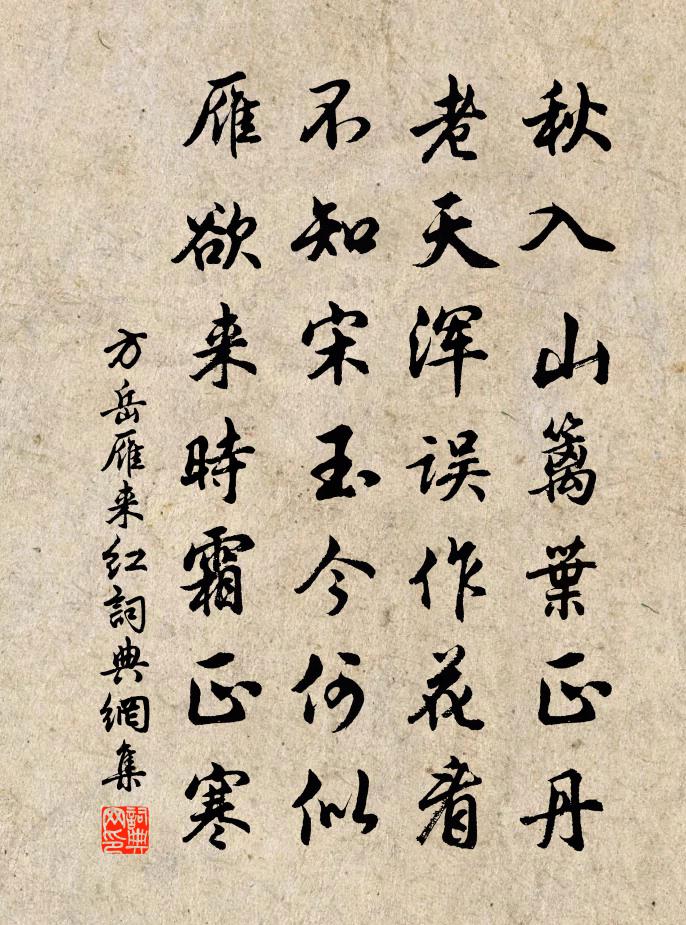 秋入山篱葉正丹
老天浑误作花看
不知宋玉今何似
雁欲来時霜正寒
方岳雁来红詞典網集
詞典
网印